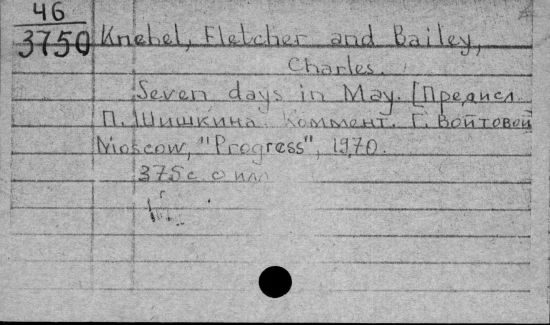 46
3750 Knebel, Fletcher and Bailey,
Charles.
Seven days in May. [Предисл.
П. Шишкина. Коммент. Г. Войтовой
Moscow, "Progress", 1970.
375 с. с илл